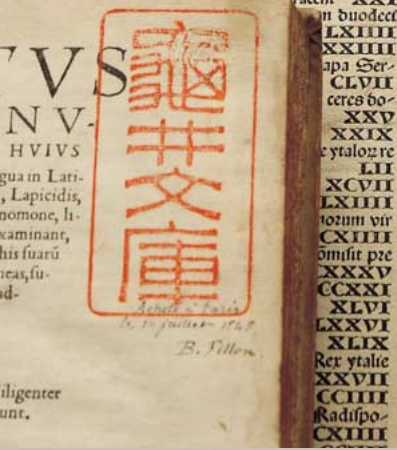 TVS
NV-
HVIVS
gua in Lati-
, Lapicidis,
nomone, li-
xaminant,
his suarū
neas, su-
ad-
iligenter
unt.
龜井文庫
Acheté à Paris
le juillet
B. Fillon.
n duodeci
LXIIII
XXIIII
apa Ser-
CLVII
ceres bo-
XXV
XXIX
e ytaloꝝ re
LII
XCVII
LXIIII
noꝛum vir
CXIIII
omisit pꝛe
XXXV
CCXXI
XLVI
LXXVI
XLIX
Rex ytalie
XXVII
CCIIII
Radispo-
CXIIII